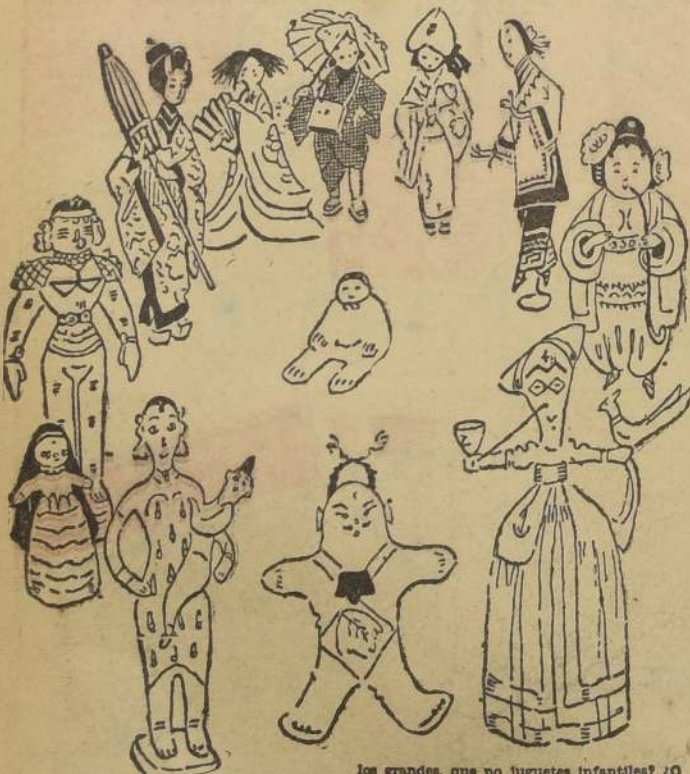 los grandes, que no juguetes infantiles? ¿O